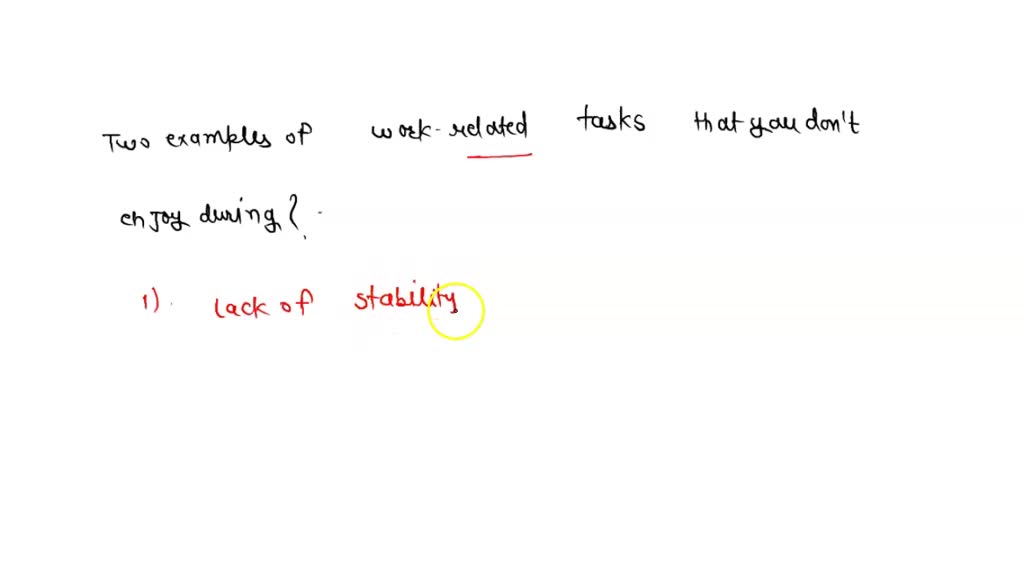 Two examples of work-related tasks that you don't
enjoy during?
1). lack of stability